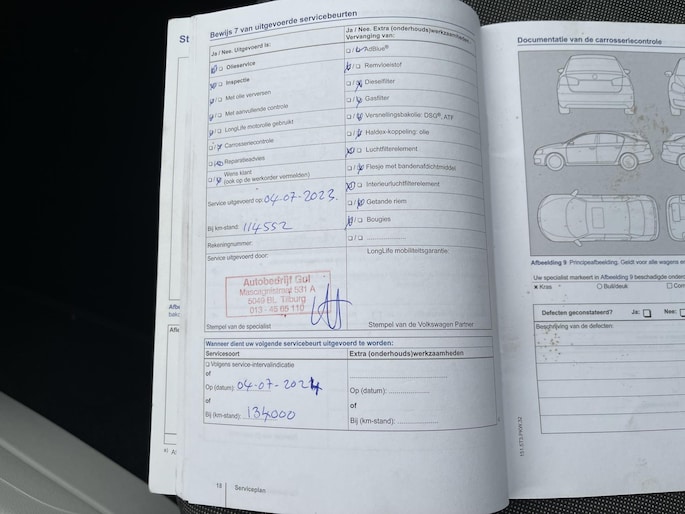 St
Bewijs 7 van uitgevoerde servicebeurten
Ja / Nee. Uitgevoerd is:
Olieservice
Inspectie
Met olie verversen
Met aanvullende controle
LongLife motorolie gebruikt
Carrosseriecontrole
Reparatieadvies
Wens klant
(ook op de werkorder vermelden)
Service uitgevoerd op: 04-07-2023
Bij km-stand: 114552
Rekeningnummer:
Service uitgevoerd door:
Autobedrijf Gul
Mascagnistraat 531 A
5049 BL Tilburg
013 - 45 65 110
Stempel van de specialist
Ja / Nee. Extra (onderhouds)werkzaamheden
Vervanging van:
AdBlue®
Remvloeistof
Dieselfilter
Gasfilter
Versnellingsbakolie: DSG®, ATF
Haldex-koppeling: olie
Luchtfilterelement
Flesje met bandenafdichtmiddel
Interieurluchtfilterelement
Getande riem
Bougies
LongLife mobiliteitsgarantie:
Stempel van de Volkswagen Partner
Wanneer dient uw volgende servicebeurt uitgevoerd te worden:
Servicesoort
Volgens service-intervalindicatie
of
Op (datum): 04-07-2024
of
Bij (km-stand): 134000
Extra (onderhouds)werkzaamheden
Op (datum):
of
Bij (km-stand):
18
Serviceplan
Documentatie van de carrosseriecontrole
Afbeelding 9 Principeafbeelding. Geldt voor alle wagens
Uw specialist markeert in Afbeelding 9 beschadigde
x Kras
Buil/deuk
Defecten geconstateerd?
Ja:
Nee:
Beschrijving van de defecten: